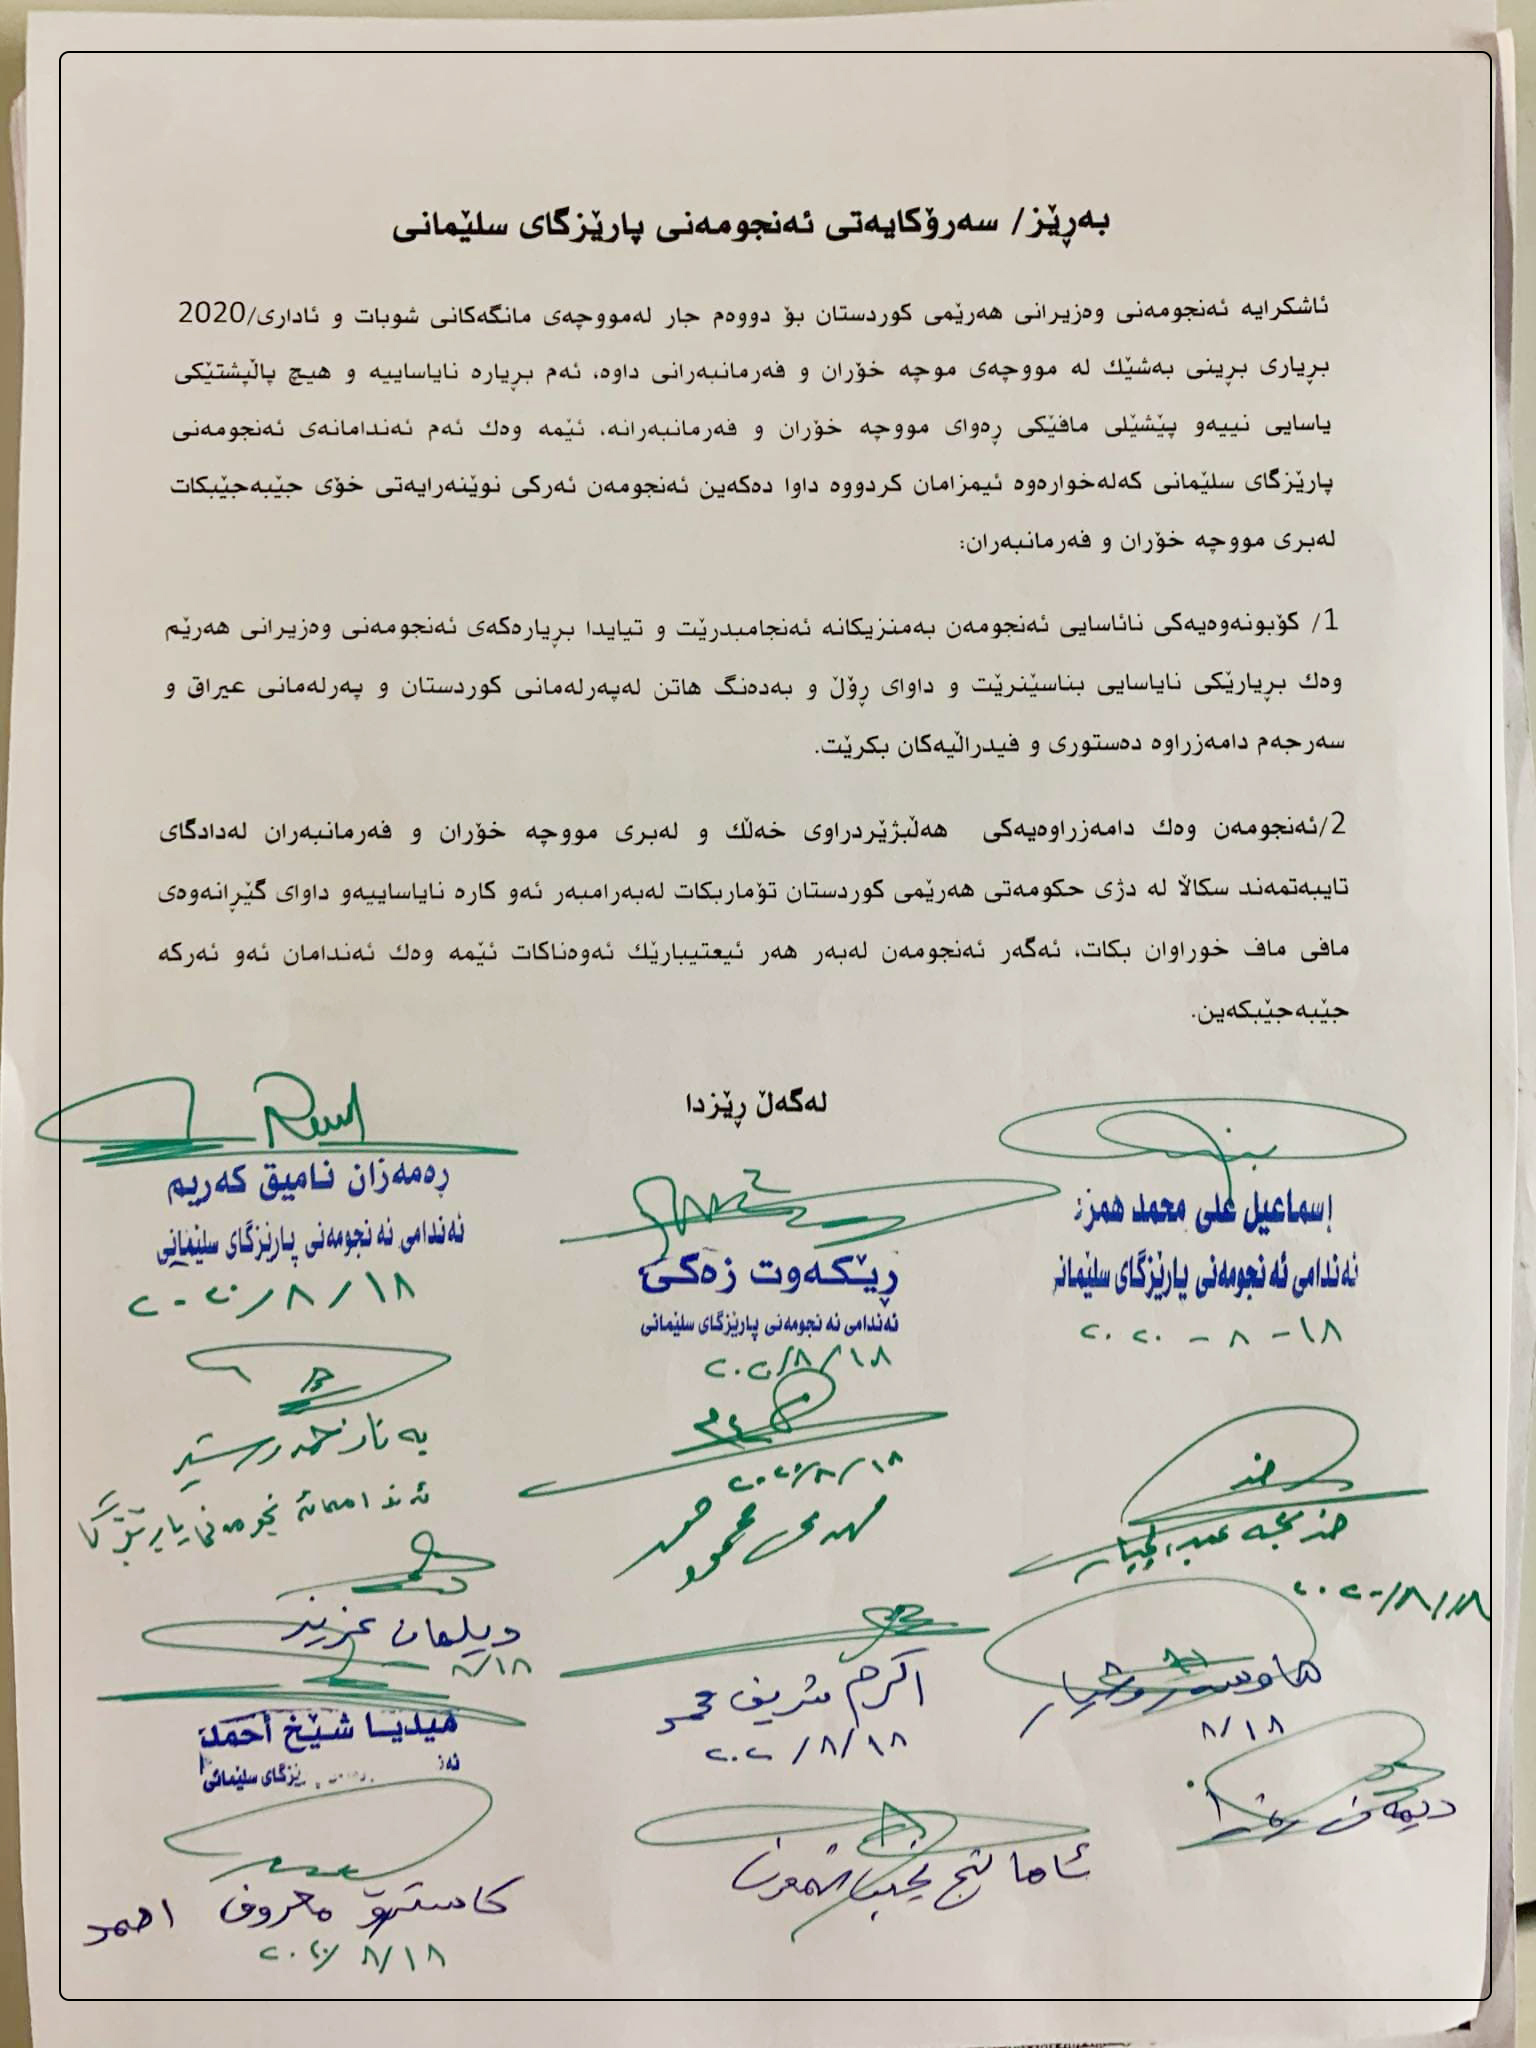 بەڕێز/ سەرۆکایەتی ئەنجومەنی پارێزگای سلێمانی
ئاشکرایە ئەنجومەنی وەزیرانی هەرێمی کوردستان بۆ دووەم جار لەمووچەی مانگەکانی شوبات و ئاداری/2020
بڕیاری بڕینی بەشێك لە مووچەی موچە خۆران و فەرمانبەرانی داوە، ئەم بڕیارە نایاساییە و هیچ پاڵپشتێکی
یاسایی نییەو پێشێلی مافێکی ڕەوای مووچە خۆران و فەرمانبەرانە، ئێمە وەك ئەم ئەندامانەی ئەنجومەنی
پارێزگای سلێمانی کەلەخوارەوە ئیمزامان کردووە داوا دەکەین ئەنجومەن ئەرکی نوێنەرایەتی خۆی جێبەجێبکات
لەبری مووچە خۆران و فەرمانبەران:
1/ کۆبونەوەیەکی نائاسایی ئەنجومەن بەمنزیکانە ئەنجامبدرێت و تیایدا بڕیارەکەی ئەنجومەنی وەزیرانی هەرێم
وەك بڕیارێکی نایاسایی بناسێنرێت و داوای ڕۆڵ و بەدەنگ هاتن لەپەرلەمانی کوردستان و پەرلەمانی عیراق و
سەرجەم دامەزراوە دەستوری و فیدراڵیەکان بکرێت.
2/ئەنجومەن وەك دامەزراوەیەکی هەڵبژێردراوی خەڵك و لەبری مووچە خۆران و فەرمانبەران لەدادگای
تایبەتمەند سکاڵا لە دژی حکومەتی هەرێمی کوردستان تۆماربکات لەبەرامبەر ئەو کارە نایاساییەو داوای گێڕانەوەی
مافی ماف خوراوان بکات، ئەگەر ئەنجومەن لەبەر هەر ئیعتیبارێك ئەوەناکات ئێمە وەك ئەندامان ئەو ئەرکە
جێبەجێبکەین.
لەگەڵ ڕێزدا
إسماعیل علی محمد همزة
ئەندامی ئەنجومەنی پارێزگای سلێمانی
٢٠٢٠ - ٨ - ١٨
ڕێکەوت زەکی
ئەندامی ئەنجومەنی پارێزگای سلێمانی
٢٠٢٠/٨/١٨
ڕەمەزان نامیق کەریم
ئەندامی ئەنجومەنی پارێزگای سلێمانی
٢٠٢٠/٨/١٨
٢٠٢٠/٨/١٨
٢٠٢٠/٨/١٨
محمود
اکرم شریف محمد
٢٠٢٠/٨/١٨
٨/١٨
دیلمان عزیز
٨/١٨
میدیا شێخ أحمد
پارێزگای سلێمانی
کاسترۆ معروف احمد
٢٠٢٠/٨/١٨